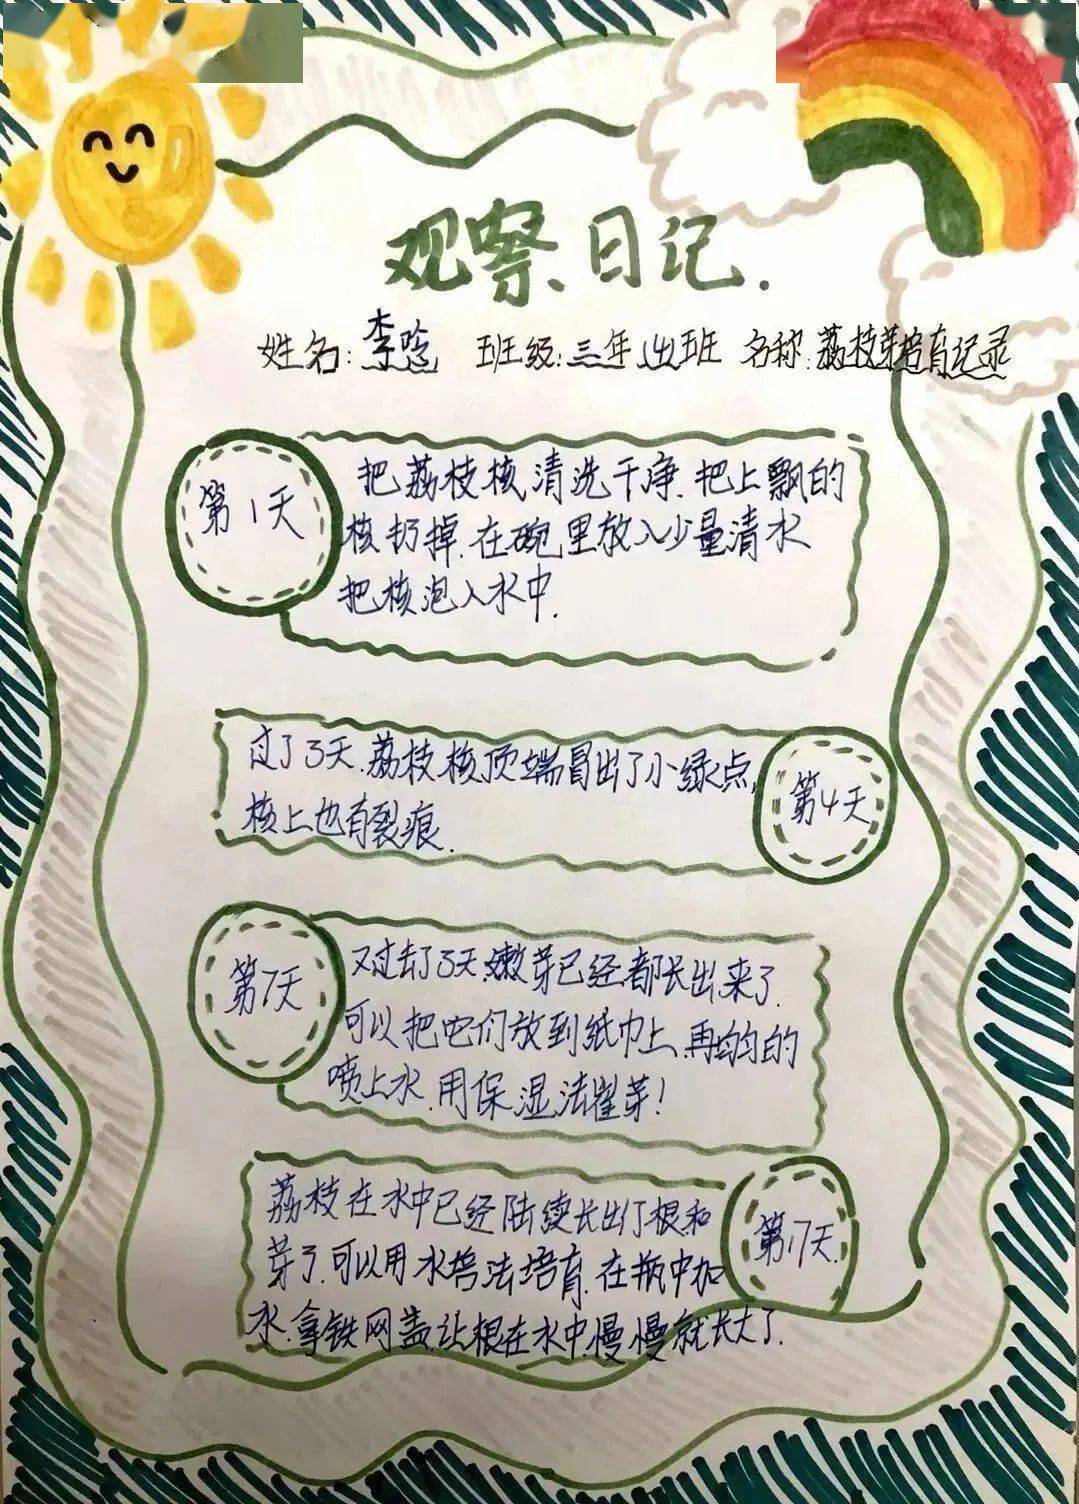 观察日记.
姓名:李 班级:三年 班 名称:荔枝芽培育记录
第1天
把荔枝核清洗干净.把上飘的
核扔掉.在碗里放入少量清水
把核泡入水中.
过了3天.荔枝核顶端冒出了小绿点,
核上也有裂痕.
第4天
第7天
又过去了3天.嫩芽已经都长出来了.
可以把它们放到纸巾上.再均匀的
喷上水.用保湿法催芽!
荔枝在水中已经陆续长出了根和
芽了.可以用水培法培育.在瓶中加
水.拿铁网盖.让根在水中.慢慢就长大了.
第17天.